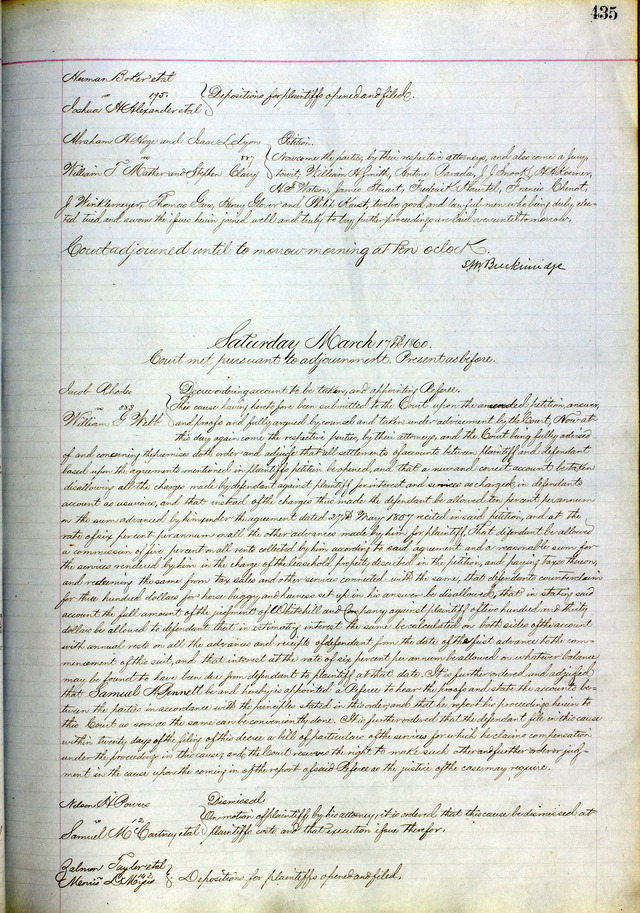 435
Herman Boker et al
vs 195.
Joshua H Alexander et al
Depositions for plaintiffs opened and filed.
Abraham H Hoge and Isaac L Lyon
vs
William T Mather and Stephen Clary
Petition.
Now come the parties, by their respective attorneys, and also come a jury,
towit, William H Smith, Antine Parada, J J Snook,
Watson, James Stuart, Frederick Francis Chenot,
J Winklemeyer, Thomas Gay, Henry Glover and twelve good and lawful men who being duly elec-
ted tried and sworn the issue herein joined well and truly to try further proceedings are laid over until tomorrow.
Court adjourned until to morrow morning at ten oclock.
Saturday March 17th 1860.
Court met pursuant to adjournment. Present as before.
Jacob Rhodes
vs
William G Webb
Decree ordering account to be taken, and appointing Referee.
This cause having heretofore been submitted to the Court upon the amended petition, answer,
and proofs and fully argued by counsel and taken under advisement by the Court, Now at
this day again come the respective parties, by their attorneys, and the Court being fully advised
of and concerning the premises doth order and adjudge that all settlements of accounts between plaintiff and defendant
based upon the agreements mentioned in plaintiffs petition be opened, and that a new and correct account be taken
disallowing all the charges made by defendant against plaintiff for interest and services as charged in defendants
account as usurious, and that instead of the charges thus made the defendant be allowed ten per cent per annum
on the sum advanced by him under the agreement dated 27th May 1857 recited in said petition, and at the
rate of six per cent per annum on all the other advances made by him for plaintiff, That defendant be allowed
a commission of five percent on all rents collected by him according to said agreement and a reasonable sum for
the services rendered by him in the charge of the leasehold property described in the petition, and paying taxes thereon,
and redeeming the same from tax sales and other services connected with the same, that defendants counterclaim
for three hundred dollars for horse buggy and harness set up in his answer be disallowed, that in stating said
account the full amount of the judgment of Whitehill and Company against plaintiff of two hundred and thirty
dollars be allowed to defendant that in estimating interest the same be calculated on both sides of the account
with annual rests on all the advances and receipts of defendant from the date of the first advance to the com-
mencement of this suit, and that interest at the rate of six per cent per annum be allowed on whatever balance
may be found to have been due from defendant to plaintiff at that date. It is further ordered, and adjudged
that Samuel A Bennett be and hereby is appointed a Referee to hear the proofs and state the accounts be-
tween the parties in accordance with the principles stated in this order, and that he report his proceedings herein to
this Court as soon as the same can be conveniently done. It is further ordered that the defendant file in this cause
within twenty days of the filing of this decree a bill of particulars of the services for which he claims compensation
under the proceedings in this cause, and the Court reserves the right to make such other and further order or judg-
ment in the cause upon the coming in of the report of said Referee as the justice of the case may require.
Nelson H Powers
vs 12
Samuel McCartney et al
Dismissed
On motion of plaintiff by his attorney, it is ordered that this cause be dismissed at
plaintiffs costs and that execution issue therefor.
Zalmon Taylor et al
Depositions for plaintiffs opened and filed.